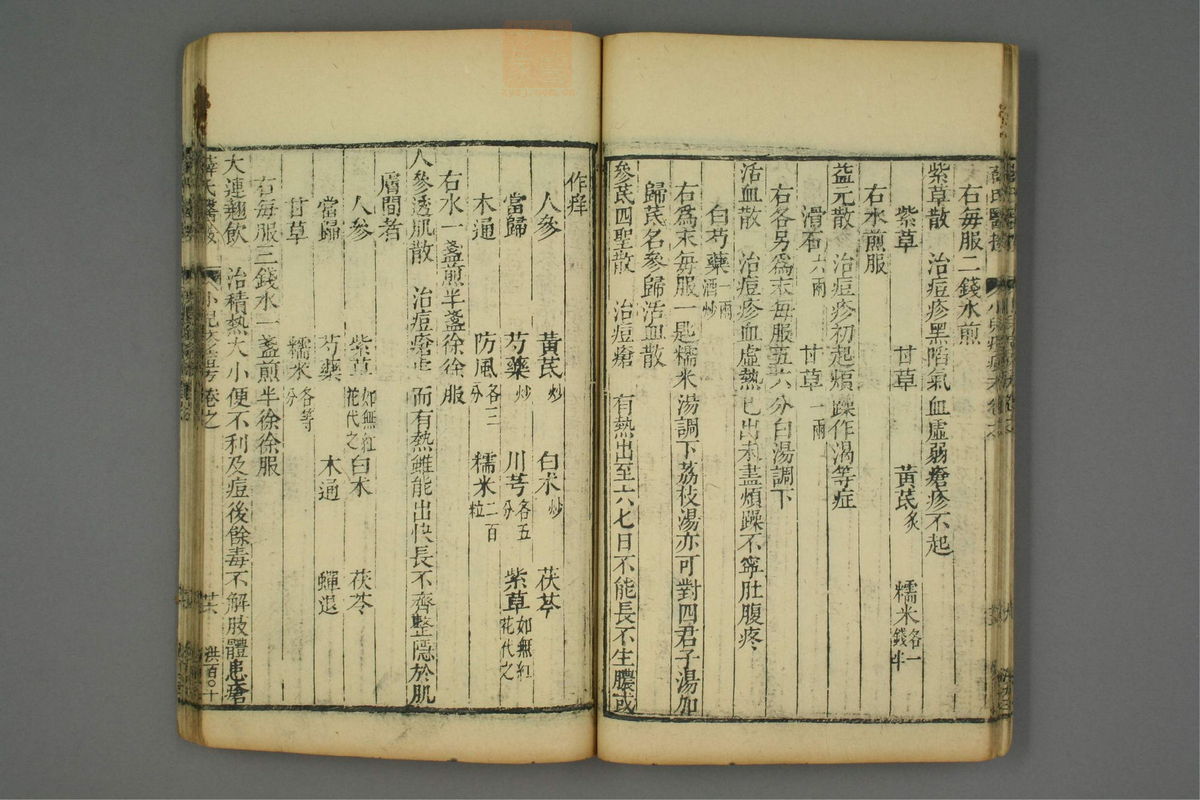 右每服二錢水煎
紫草散 治痘疹黑陷氣血虛弱瘡疹不起
紫草 甘草 黃芪炙 糯米各一錢半
右水煎服
益元散 治痘疹初起煩躁作渴等症
滑石六兩 甘草一兩
右各另為末每服五六分白湯調下
活血散 治痘疹血虛熱已出未盡煩躁不寧肚腹疼
白芍藥一兩酒炒
右為末每服一匙糯米湯調下荔枝湯亦可對四君子湯加
歸芪名參歸活血散
參芪四聖散 治痘瘡 有熱出至六七日不能長不生膿或
作痒
人參 黃芪炒 白朮炒 茯苓
當歸 芍藥炒 川芎各五分 紫草如無紅花代之
木通 防風各三分 糯米二百粒
右水一盞煎半盞徐徐服
人參透肌散 治痘瘡 而有熱雖能出快長不齊整隱於肌
膚間者
人參 紫草如無紅花代之 白朮 茯苓
當歸 芍藥 木通 蟬退
甘草 糯米各等分
右每服三錢水一盞煎半徐徐服
大連翹飲 治積熱大小便不利及痘後餘毒不解肢體患瘡
薛氏醫
洪百〇十